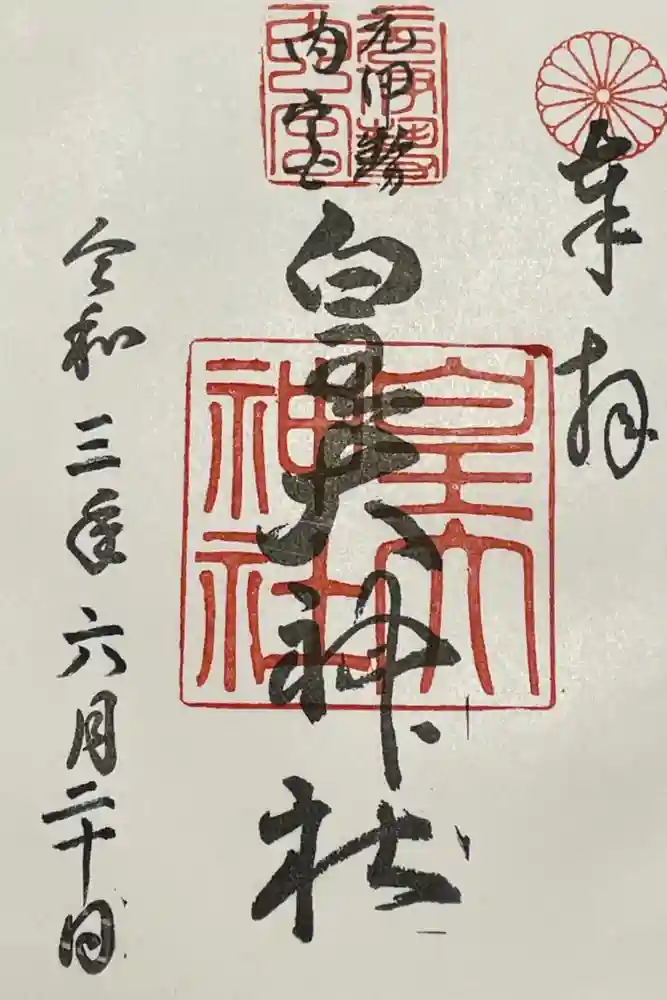 奉拝
元伊勢
内宮
皇大神社
皇大神社
令和三年六月二十日